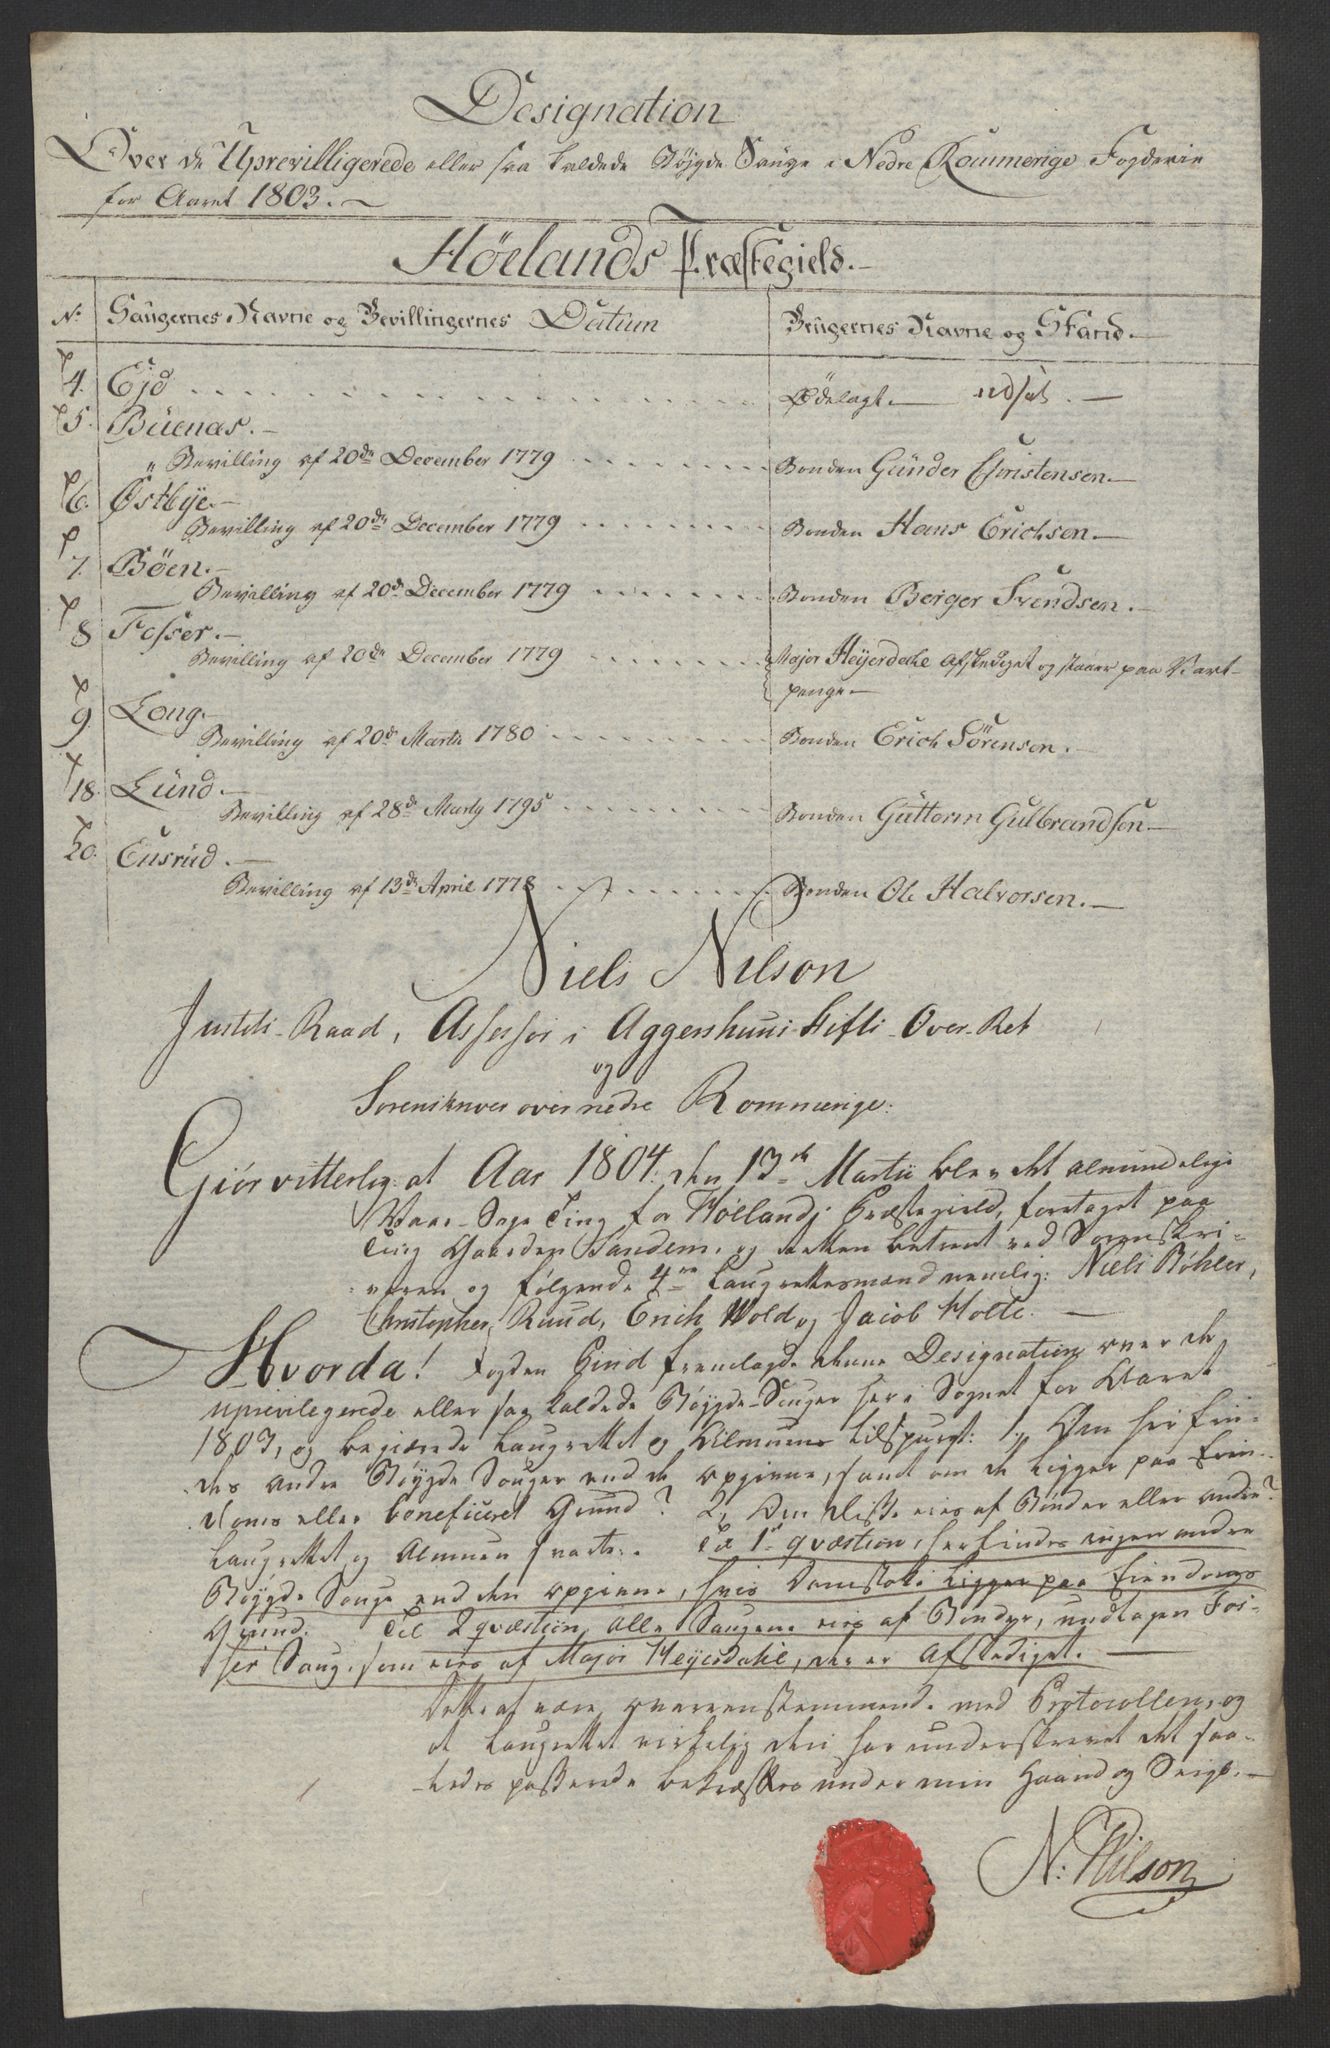 Designation
Over de Uprevilligerede eller saa kaldede Bøjgde Sauge i Nedre Roumerige Fogderie
for Aaret 1803.
Höelands Præstegield.
N. Saugernes Navne og Bevillingernes Datum Brugernes Navne og Stand.
4. Ejd Ødelagt. udsat.
5. Büenas.
" Bevilling af 20de December 1779 Bonden Günder Christensen.
6. Østbye.
Bevilling af 20de December 1779 Bonden Hans Erichsen.
7. Böen.
Bevilling af 20de December 1779 Bonden Berger Svendsen.
8 Fosser.
Bevilling af 20de December 1779 Major Heyerdahl Afskediget og staaer paa Vart-
penge.
9. Long.
Bevilling af 20de Martii 1780 Bonden Erich Sörensen.
18. Lund.
Bevilling af 28de Marty 1795 Bonden Guttorm Gulbrandsen
20. Eusrud.
Bevilling af 13de April 1778 Bonden Ole Halvorsen.
Niels Nilson
Justits-Raad, Assessor i Aggershuus Stifts-Over-Ret
og
Sorenskriver over nedre Rommerige:
Giör vitterlig: at Aar 1804. den 13de Martii blev det almindelige
Vaar-Sage Ting for Høllands Præstegield, foretaget paa
Ting Gaarden Sandem, og Retten betient ved Sorenskri-
veren og følgende 4re Laugrettesmænd nemlig: Niels Bøhler,
Christopher Ruud, Erich Wold og Jacob Holte.
Hvorda! Fogden Gind fremlagde denne Designation over de
uprivilegerede eller saa kaldede Bøygde-Sauger her i Sognet for Aaret
1803, og begiærede Laugrettet og Almuen tilspurgt: 1. Om her fin-
des andre Bøygde Sauger end de opgivne, samt om de ligger paa Eien-
doms eller beneficeret Grund? 2, Om disse eies af Bønder eller andre?
Laugrettet og Almuen svarte: Til 1te qvæstion, her findes ingen andre
Bøygde Sauge end den opgivne, hvis Damstok ligger paa Eiendoms
Grund. Til 2 qvæstion, alle Saugene eies af Bønder, undtagen Fos-
ser Saug, som eies af Major Heyerdahl, der er Afskediget.
Dette at være overeensstemmende med Protocollen, og
at Laugrettet virkelig den har underskrevet det saa-
ledes passerede bekræftes under min Haand og Seigl.
N: Nilson